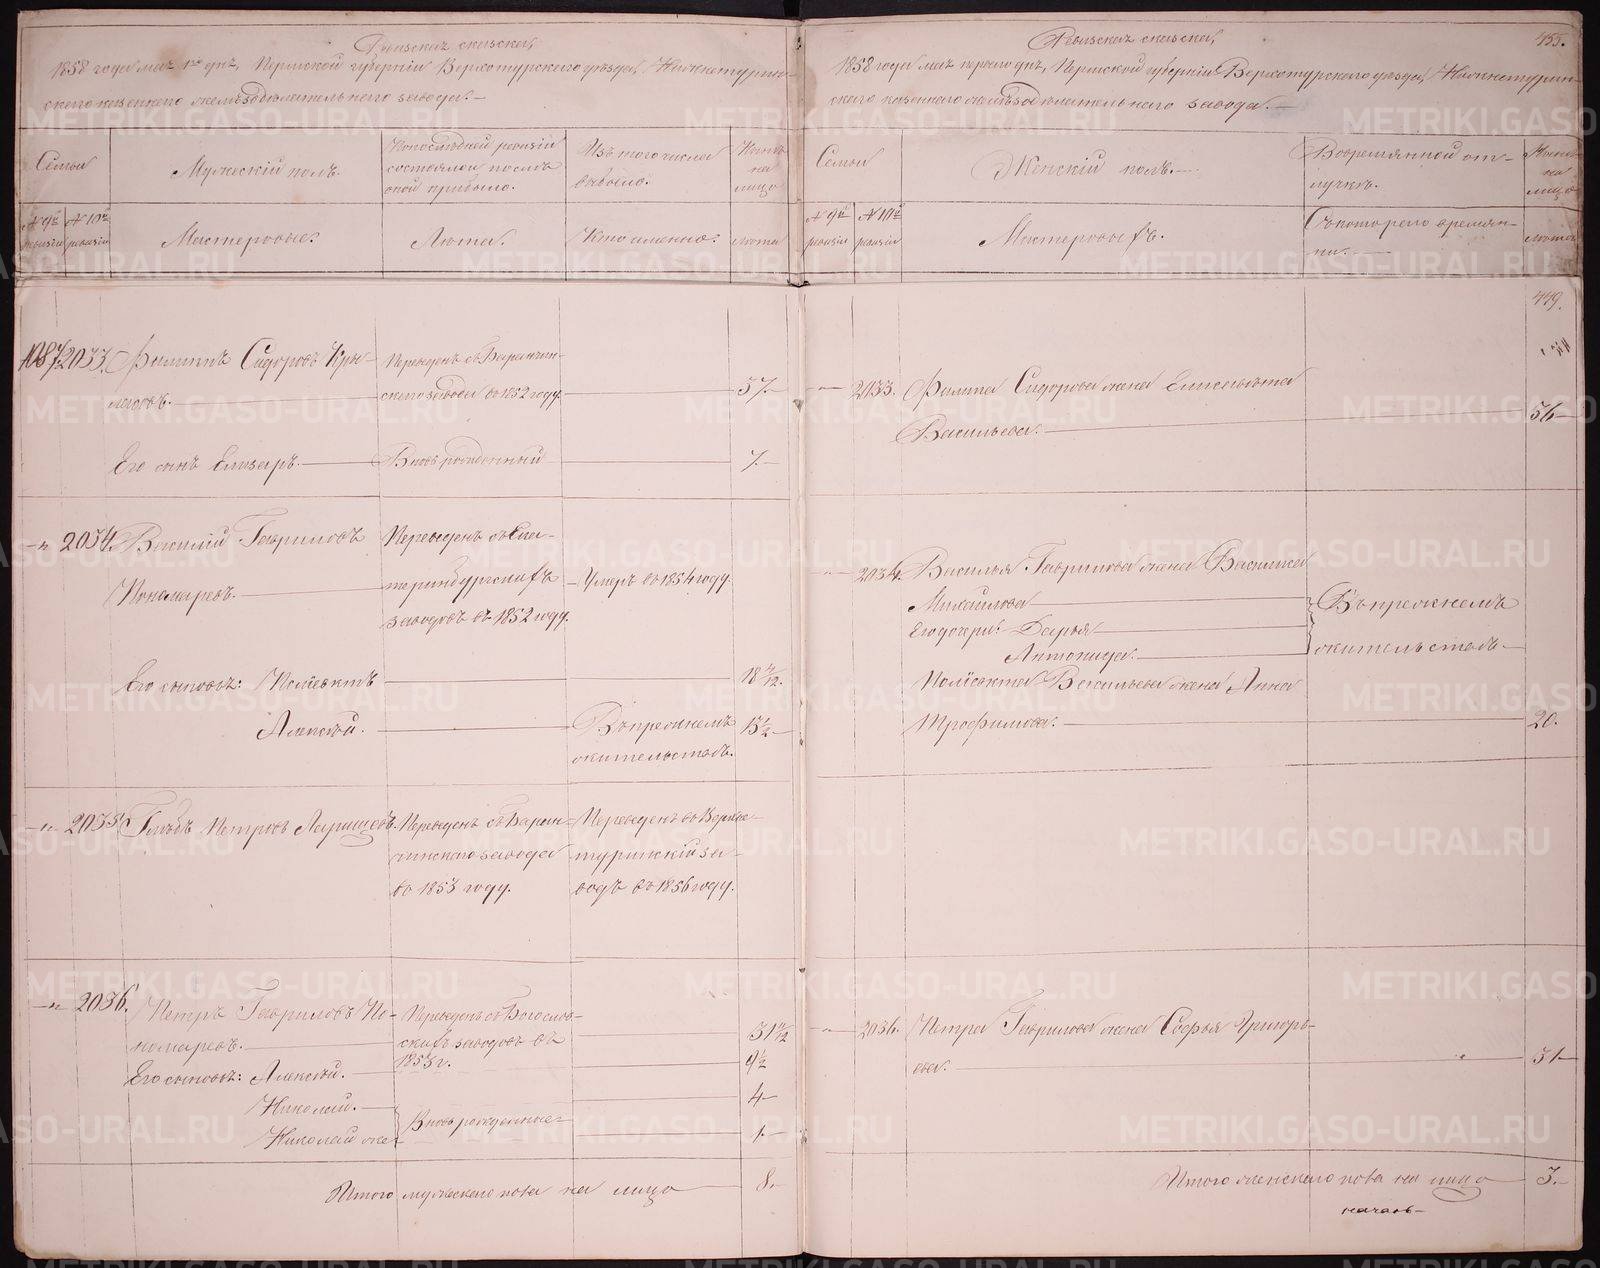 Ревизская сказка,
1858 года мая 1го дня, Пермской губерніи Верхотурскаго уѣзда, Нижнетурин-
скаго казеннаго желѣзодѣлательнаго завода.
Семьи
Мужескій полъ.
По послѣдней ревизіи
состояло и послѣ
оной прибыло.
Изъ того числа
выбыло.
Нынѣ
на
лицо
№ 9й ревизіи
№ 10й ревизіи
Мастеровые.
Лѣта.
Кто именно.
Лѣта
1087
2033.
Филиппъ Сидоровъ Кры-
ласовъ.
Переведенъ съ Баранчин-
скаго завода въ 1852 году.
57.
Его сынъ Елизаръ.
Вновь рожденный
7.
2034.
Василій Гавриловъ
Пономаревъ.
Переведенъ съ Ека-
теринбургскихъ
заводовъ въ 1852 году.
Умеръ въ 1854 году.
Его сыновья: Полiевктъ
Алексѣй.
Въ прежнемъ
жительствѣ.
2035.
Глѣбъ Петровъ Ларищевъ.
Переведенъ съ Баран-
чинскаго завода
въ 1853 году.
Переведенъ въ Верхне-
туринскій за-
водъ въ 1856 году.
2036.
Петръ Гавриловъ По-
номаревъ.
Переведенъ съ Богослов-
скихъ заводовъ въ
1853 г.
Его сыновья: Алексѣй.
9½
Николай.
4
Николай же
Вновь рожденные
1
Итого мужескаго пола на лицо
8.
Ревизская сказка,
455.
1858 года мая перваго дня, Пермской губерніи Верхотурскаго уѣзда, Нижнетурин-
скаго казеннаго желѣзодѣлательнаго завода.
Семьи
Женскій полъ.
Во временной от-
лучкѣ.
Нынѣ
на
лицо
№ 9й ревизіи
№ 10й ревизіи
Мастеровыхъ.
Съ котораго време-
ни.
Лѣта
449.
2033.
Филипа Сидорова жена Елисавета
Васильева.
56
2034.
Василья Гаврилова жена Василиса
Михайлова
Его дочери: Дарья
Антонида.
Въ прежнемъ
жительствѣ
Полiевкта Васильева жена Анна
Трофимова.
20.
2036.
Петра Гаврилова жена Софья Григорь-
ева.
31
Итого женскаго пола на лицо
3.
METRIKI.GASO-URAL.RU